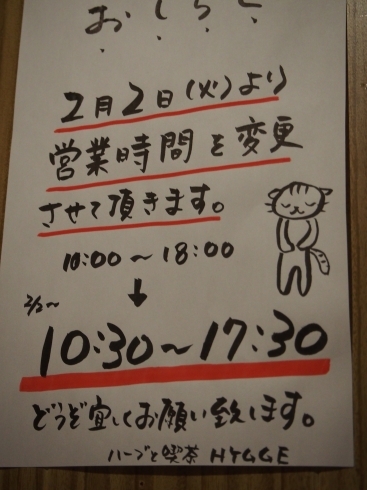 おしらせ
2月2日(火)より
営業時間を変更
させて頂きます。
10:00〜18:00
↓
2/2〜
10:30〜17:30
どうぞ宜しくお願い致します。
ハーブと喫茶 HYGGE